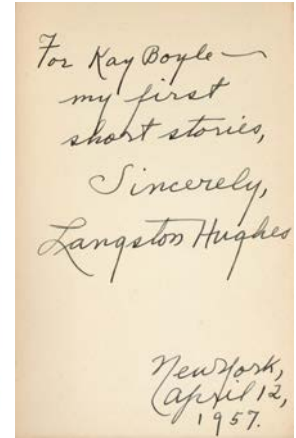 For Kay Boyle—
my first
short stories,
Sincerely,
Langston Hughes
New York,
April 12,
1957.